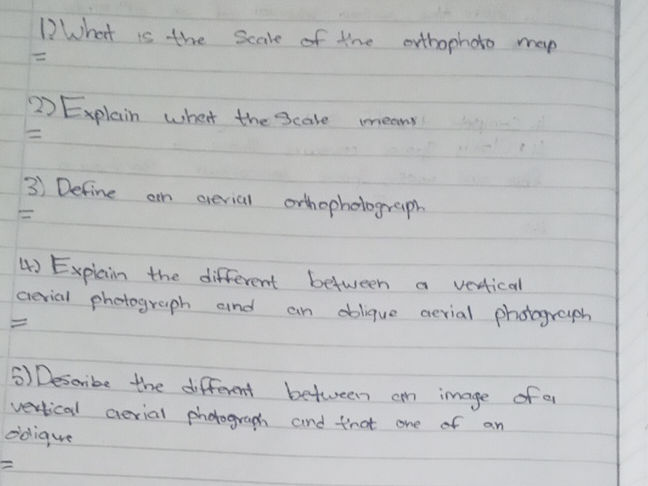 1) What is the Scale of the orthophoto map
=
2) Explain what the Scale means
=
3) Define an aerial orthophotograph
=
4) Explain the different between a vertical
aerial photograph and an oblique aerial photograph
=
5) Describe the different between an image of a
vertical aerial photograph and that one of an
oblique
=